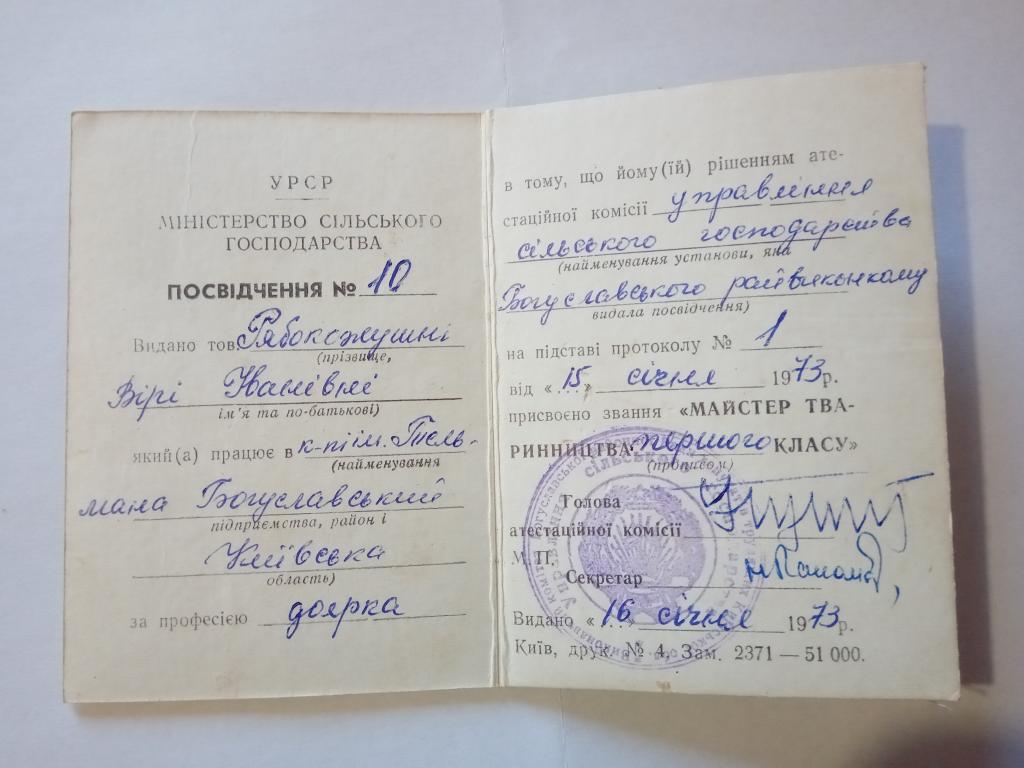 УРСР
МІНІСТЕРСТВО СІЛЬСЬКОГО
ГОСПОДАРСТВА
ПОСВІДЧЕННЯ № 10
Видано тов.
(прізвище,
Вірі
ім'я та по-батькові)
який(а) працює в к-пі ім. Тель-
(найменування
мана Богуславський
підприємства, район і
Київська
область)
за професією доярка
в тому, що йому(їй) рішенням ате-
стаційної комісії управління
сільського господарства
(найменування установи, яка
Богуславського райвиконкому
видала посвідчення)
на підставі протоколу № 1
від «15» січня 1973 р.
присвоєно звання «МАЙСТЕР ТВА-
РИННИЦТВА першого КЛАСУ»
(прописом)
Голова
атестаційної комісії
М. П.
Секретар
Видано «16» січня 1973 р.
Київ, друк. № 4, Зам. 2371 — 51 000.